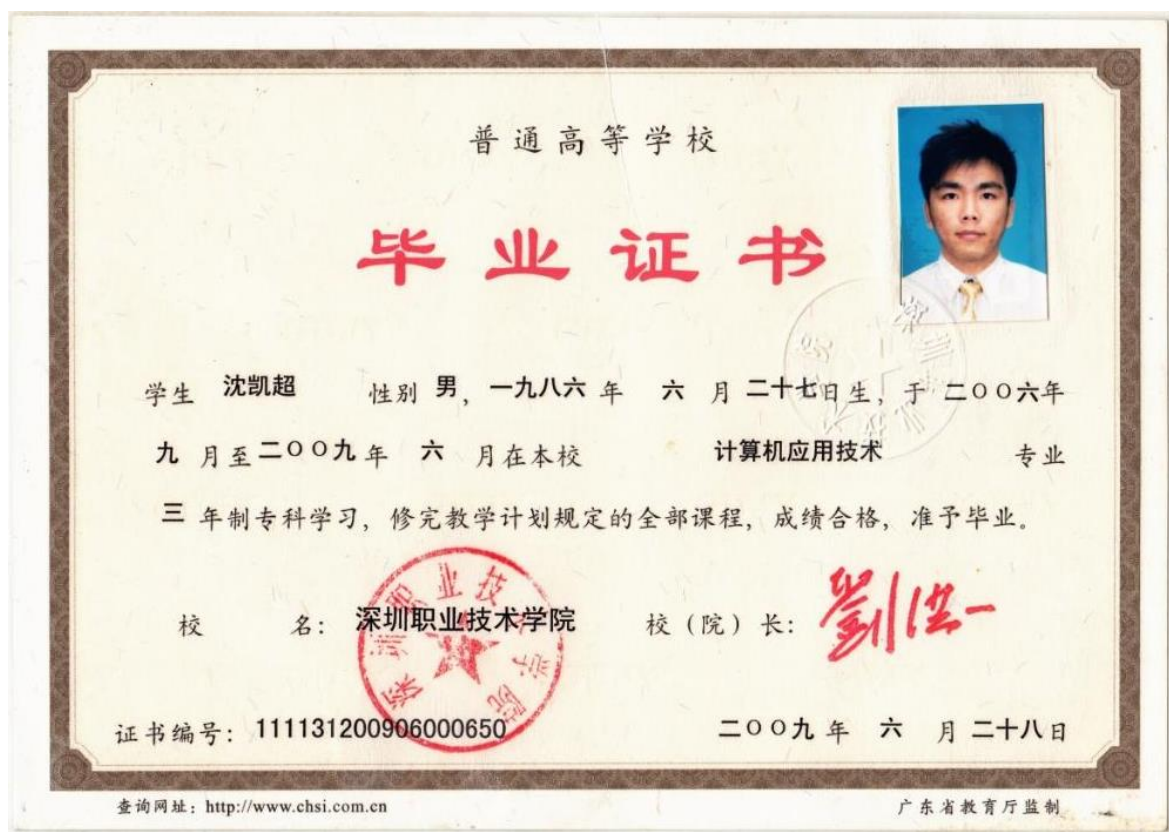 普通高等学校
毕业证书
学生 沈凯超 性别 男，一九八六 年 六 月 二十七日生，于 二〇〇六年
九 月至二〇〇九 年 六 月在本校 计算机应用技术 专业
三 年制专科学习，修完教学计划规定的全部课程，成绩合格，准予毕业。
校 名：深圳职业技术学院 校（院）长：劉洪一
深圳职业技术学院
证书编号：111131200906000650 二〇〇九 年 六 月 二十八日
查询网址：http://www.chsi.com.cn 广东省教育厅监制